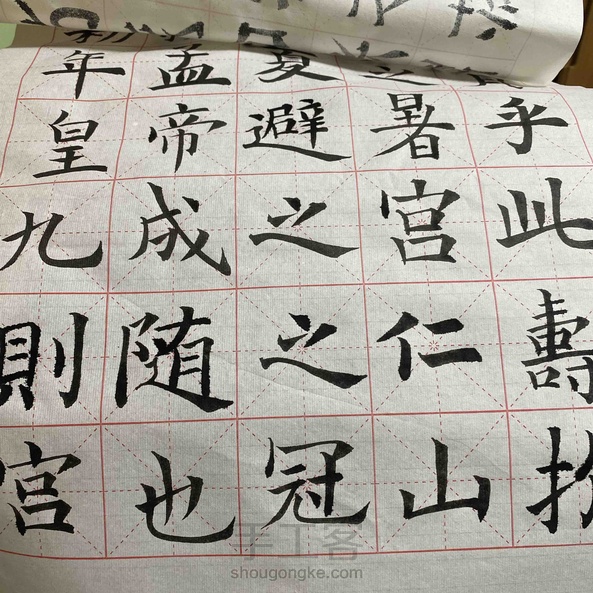 年孟夏
皇帝避暑乎
九成之宫此
則随之仁壽
宫也冠山
手工客
shougongke.com